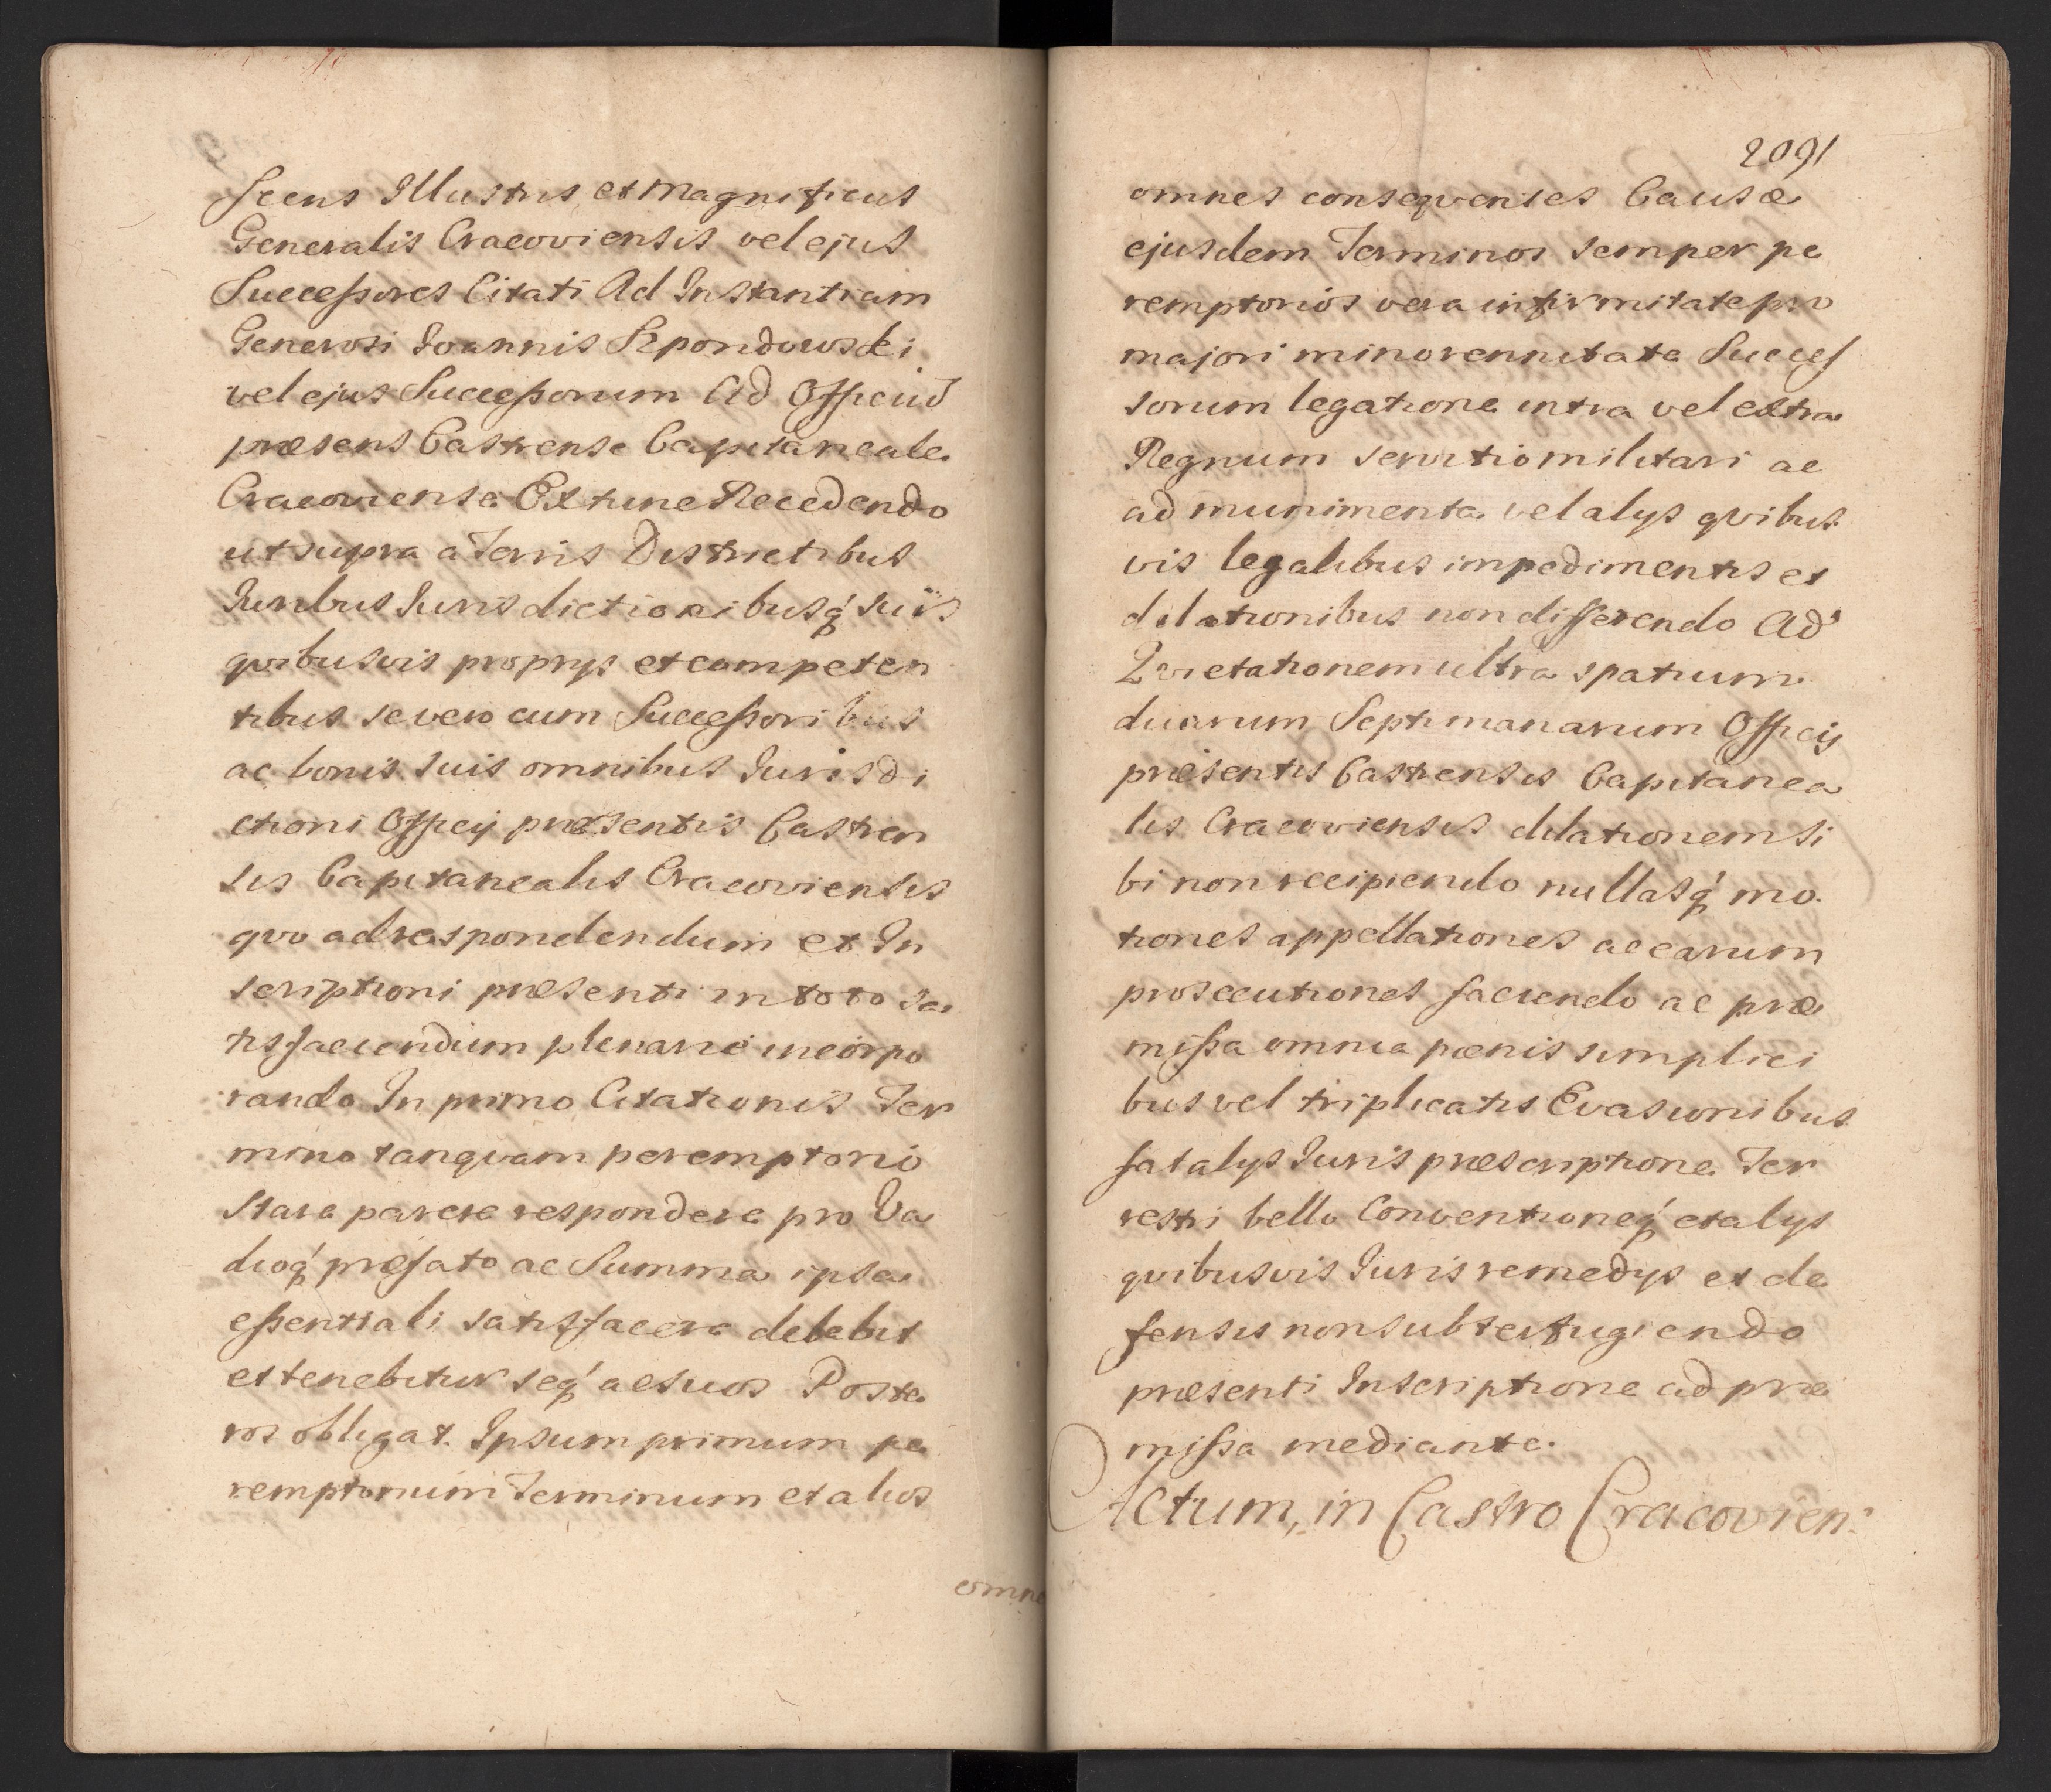 scens Illustris et Magnificus
Generalis Cracoviensis vel ejus
Successores Citati Ad Instantiam
Generosi Joannis Szpondowski
vel ejus Successorum Ad Officiũ
præsens Castrense Capitaneale
Cracoviense Extunc Recedendo
ut supra a Terris Districtibus
Iuribus Iurisdictionibusq́ suis
qvibusvis proprys et competen
tibus se vero cum Successoribus
ac bonis suis omnibus Iurisdi
ctioni Officij præsentis Castren
sis Capitanealis Cracoviensis
qvo ad respondendum et In
scriptioni præsenti in toto sa
tisfaciendum plenarie incorpo
rando In primo Citationis Ter
mino tanqvam peremptorio
stare parere respondere pro Va
dioq́ præfato ac Summa ipsa
essentiali satisfacere debebit
et tenebitur seq́ ac suos Poste
ros obligat. Ipsum primum pe
remptorium Terminum et alios
omne
2091
omnes conseqventes Causæ
ejusdem Terminos semper pe
remptorios vera infirmitate pro
majori minorennitate Succes
sorum legatione intra vel extra
Regnum servitio militari ac
ad munimenta vel alys qvibus
vis legalibus impedimentis et
dilationibus non differendo Ad
Qvietationem ultra spatium
duarum Septimanarum Officij
præsentis Castrensis Capitanea
lis Cracoviensis dilationem si
bi non recipiendo nullasq́ mo
tiones appellationes ac earum
prosecutiones faciendo ac præ
missa omnia pœnis simplici
bus vel triplicatis Evasionibus
fatalys Iuris præscriptione Ter
restri bello Conventioneq́ et alys
qvibusvis Iuris remedys et de
fensis non subterfugiendo
præsenti Inscriptione ad præ
missa mediante.
Actum, in Castro Cracovien: